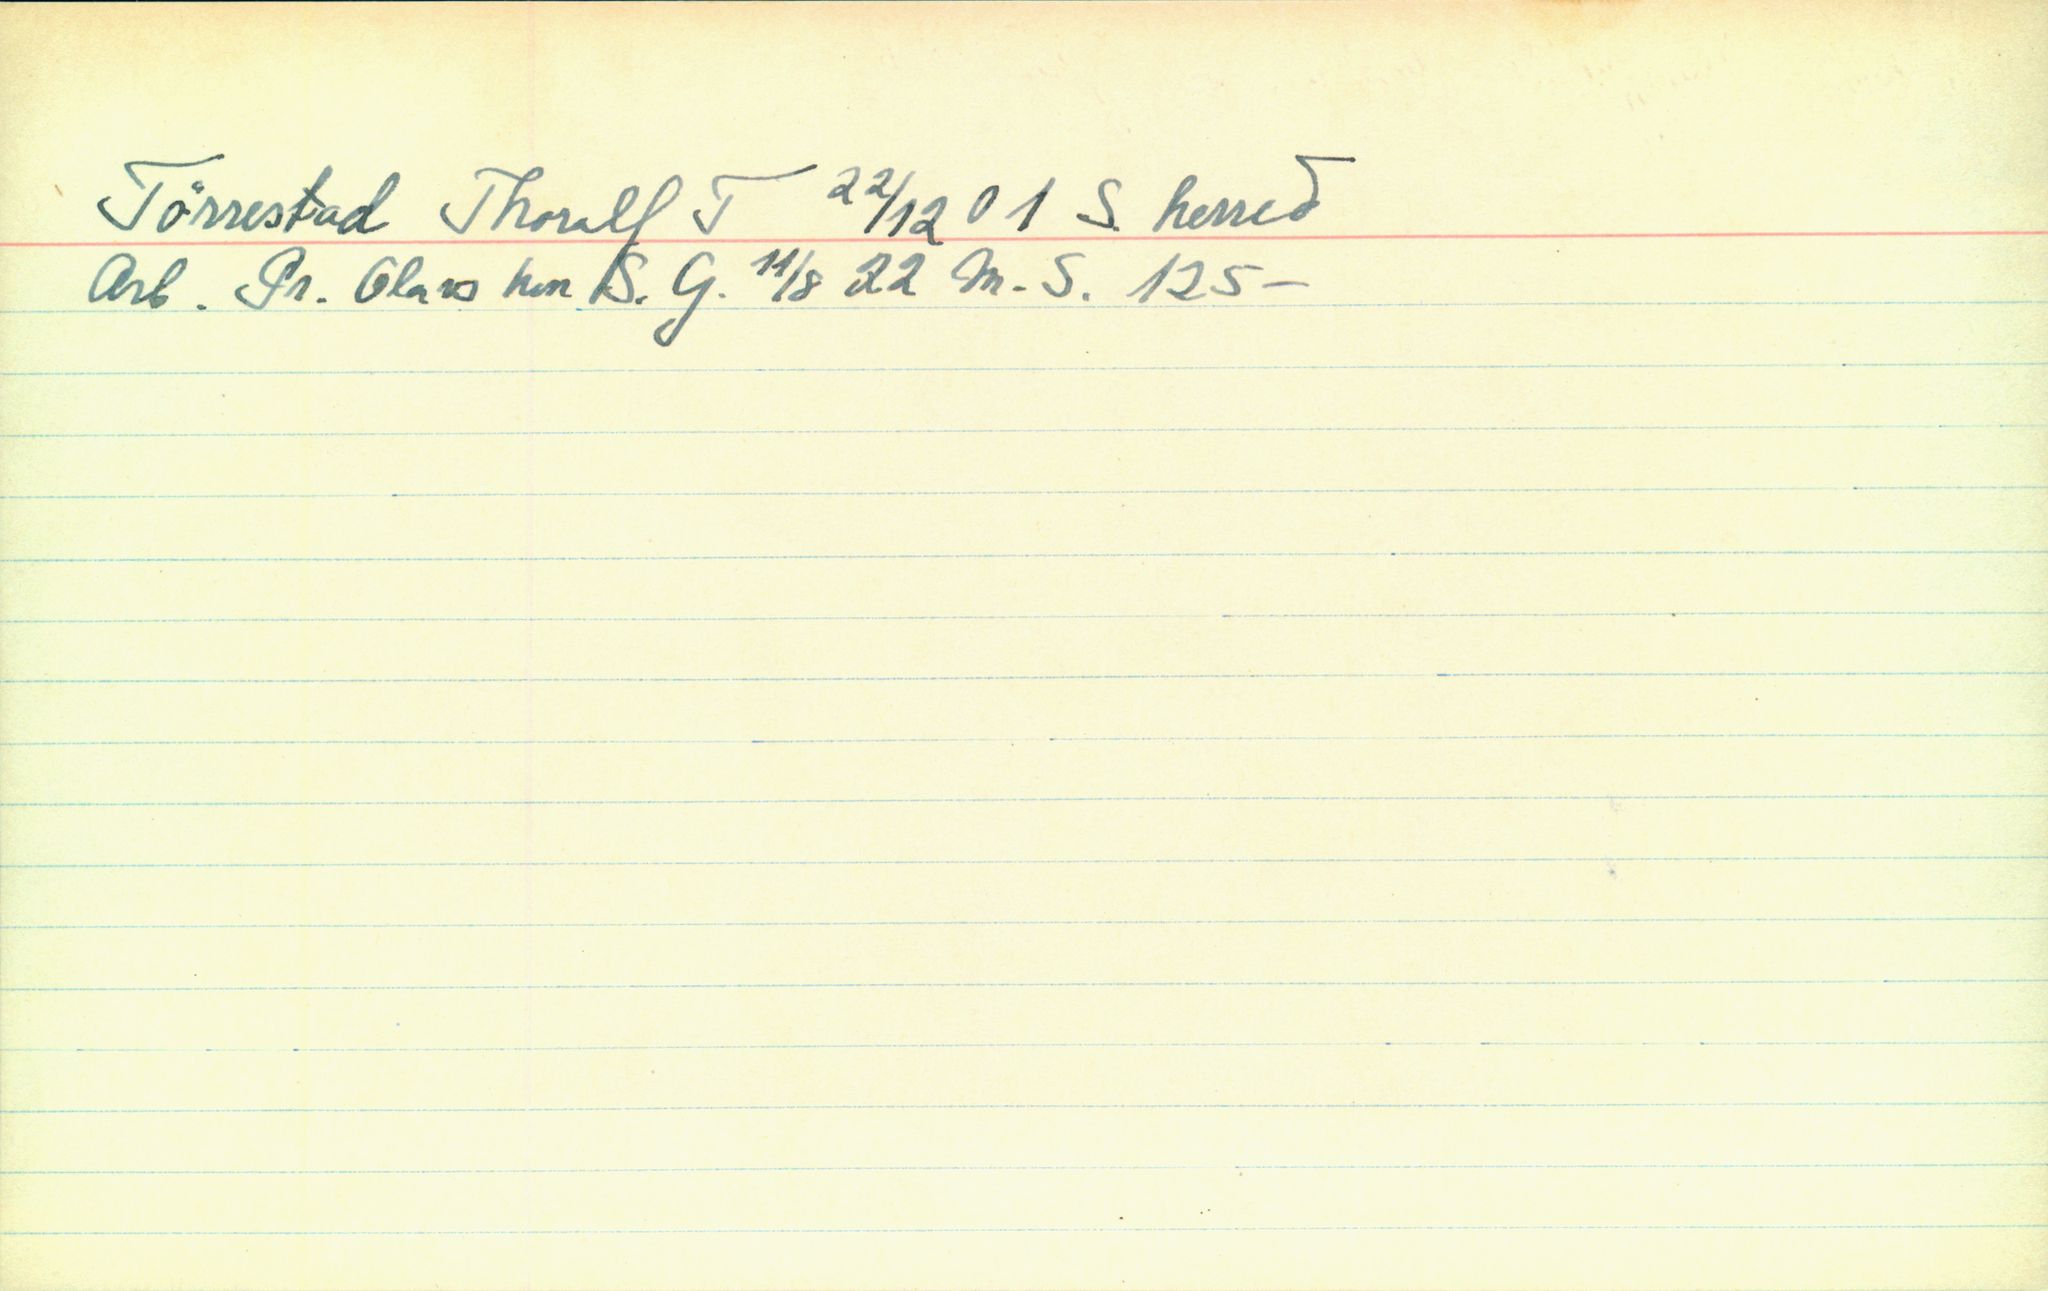 Törrestad Thoralf T 22/12 01 S. herred
Arb. Pr. Olavs hon S. G. 11/8 22 M. S. 125-